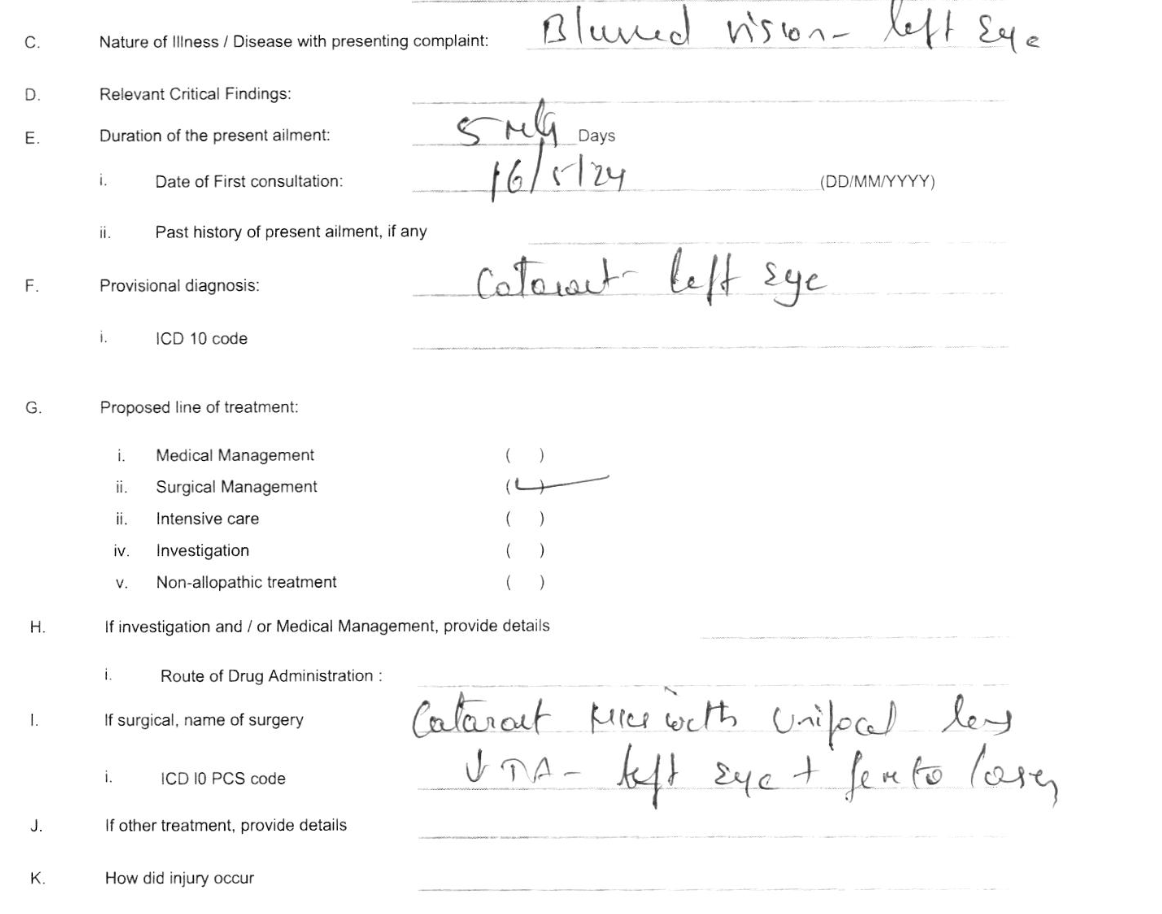 C. Nature of Illness / Disease with presenting complaint: Blurred vision - left Eye
D. Relevant Critical Findings:
E. Duration of the present ailment: 5 Days
i. Date of First consultation: 16/5/24 (DD/MM/YYYY)
ii. Past history of present ailment, if any
F. Provisional diagnosis: Cataract - left Eye
i. ICD 10 code
G. Proposed line of treatment:
i. Medical Management ( )
ii. Surgical Management ( )
ii. Intensive care ( )
iv. Investigation ( )
v. Non-allopathic treatment ( )
H. If investigation and / or Medical Management, provide details
i. Route of Drug Administration :
I. If surgical, name of surgery Cataract MICS with Unifocal lens
i. ICD I0 PCS code left Eye + femto laser
J. If other treatment, provide details
K. How did injury occur